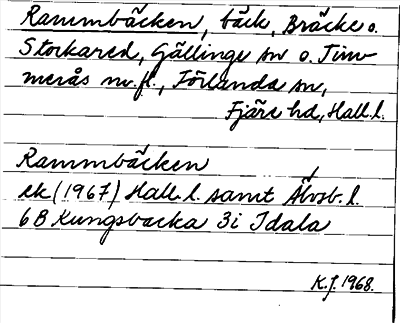 Rammbäcken, bäck, Bräcke o.
Stockared, Gällinge sn o. Tim-
merås m.fl., Förlanda sn,
Fjäre hd, Hall. l.
Rammbäcken
ek (1967) Hall. l. samt Älvsb. l.
6B Kungsbacka 3i Idala
K.J. 1968.